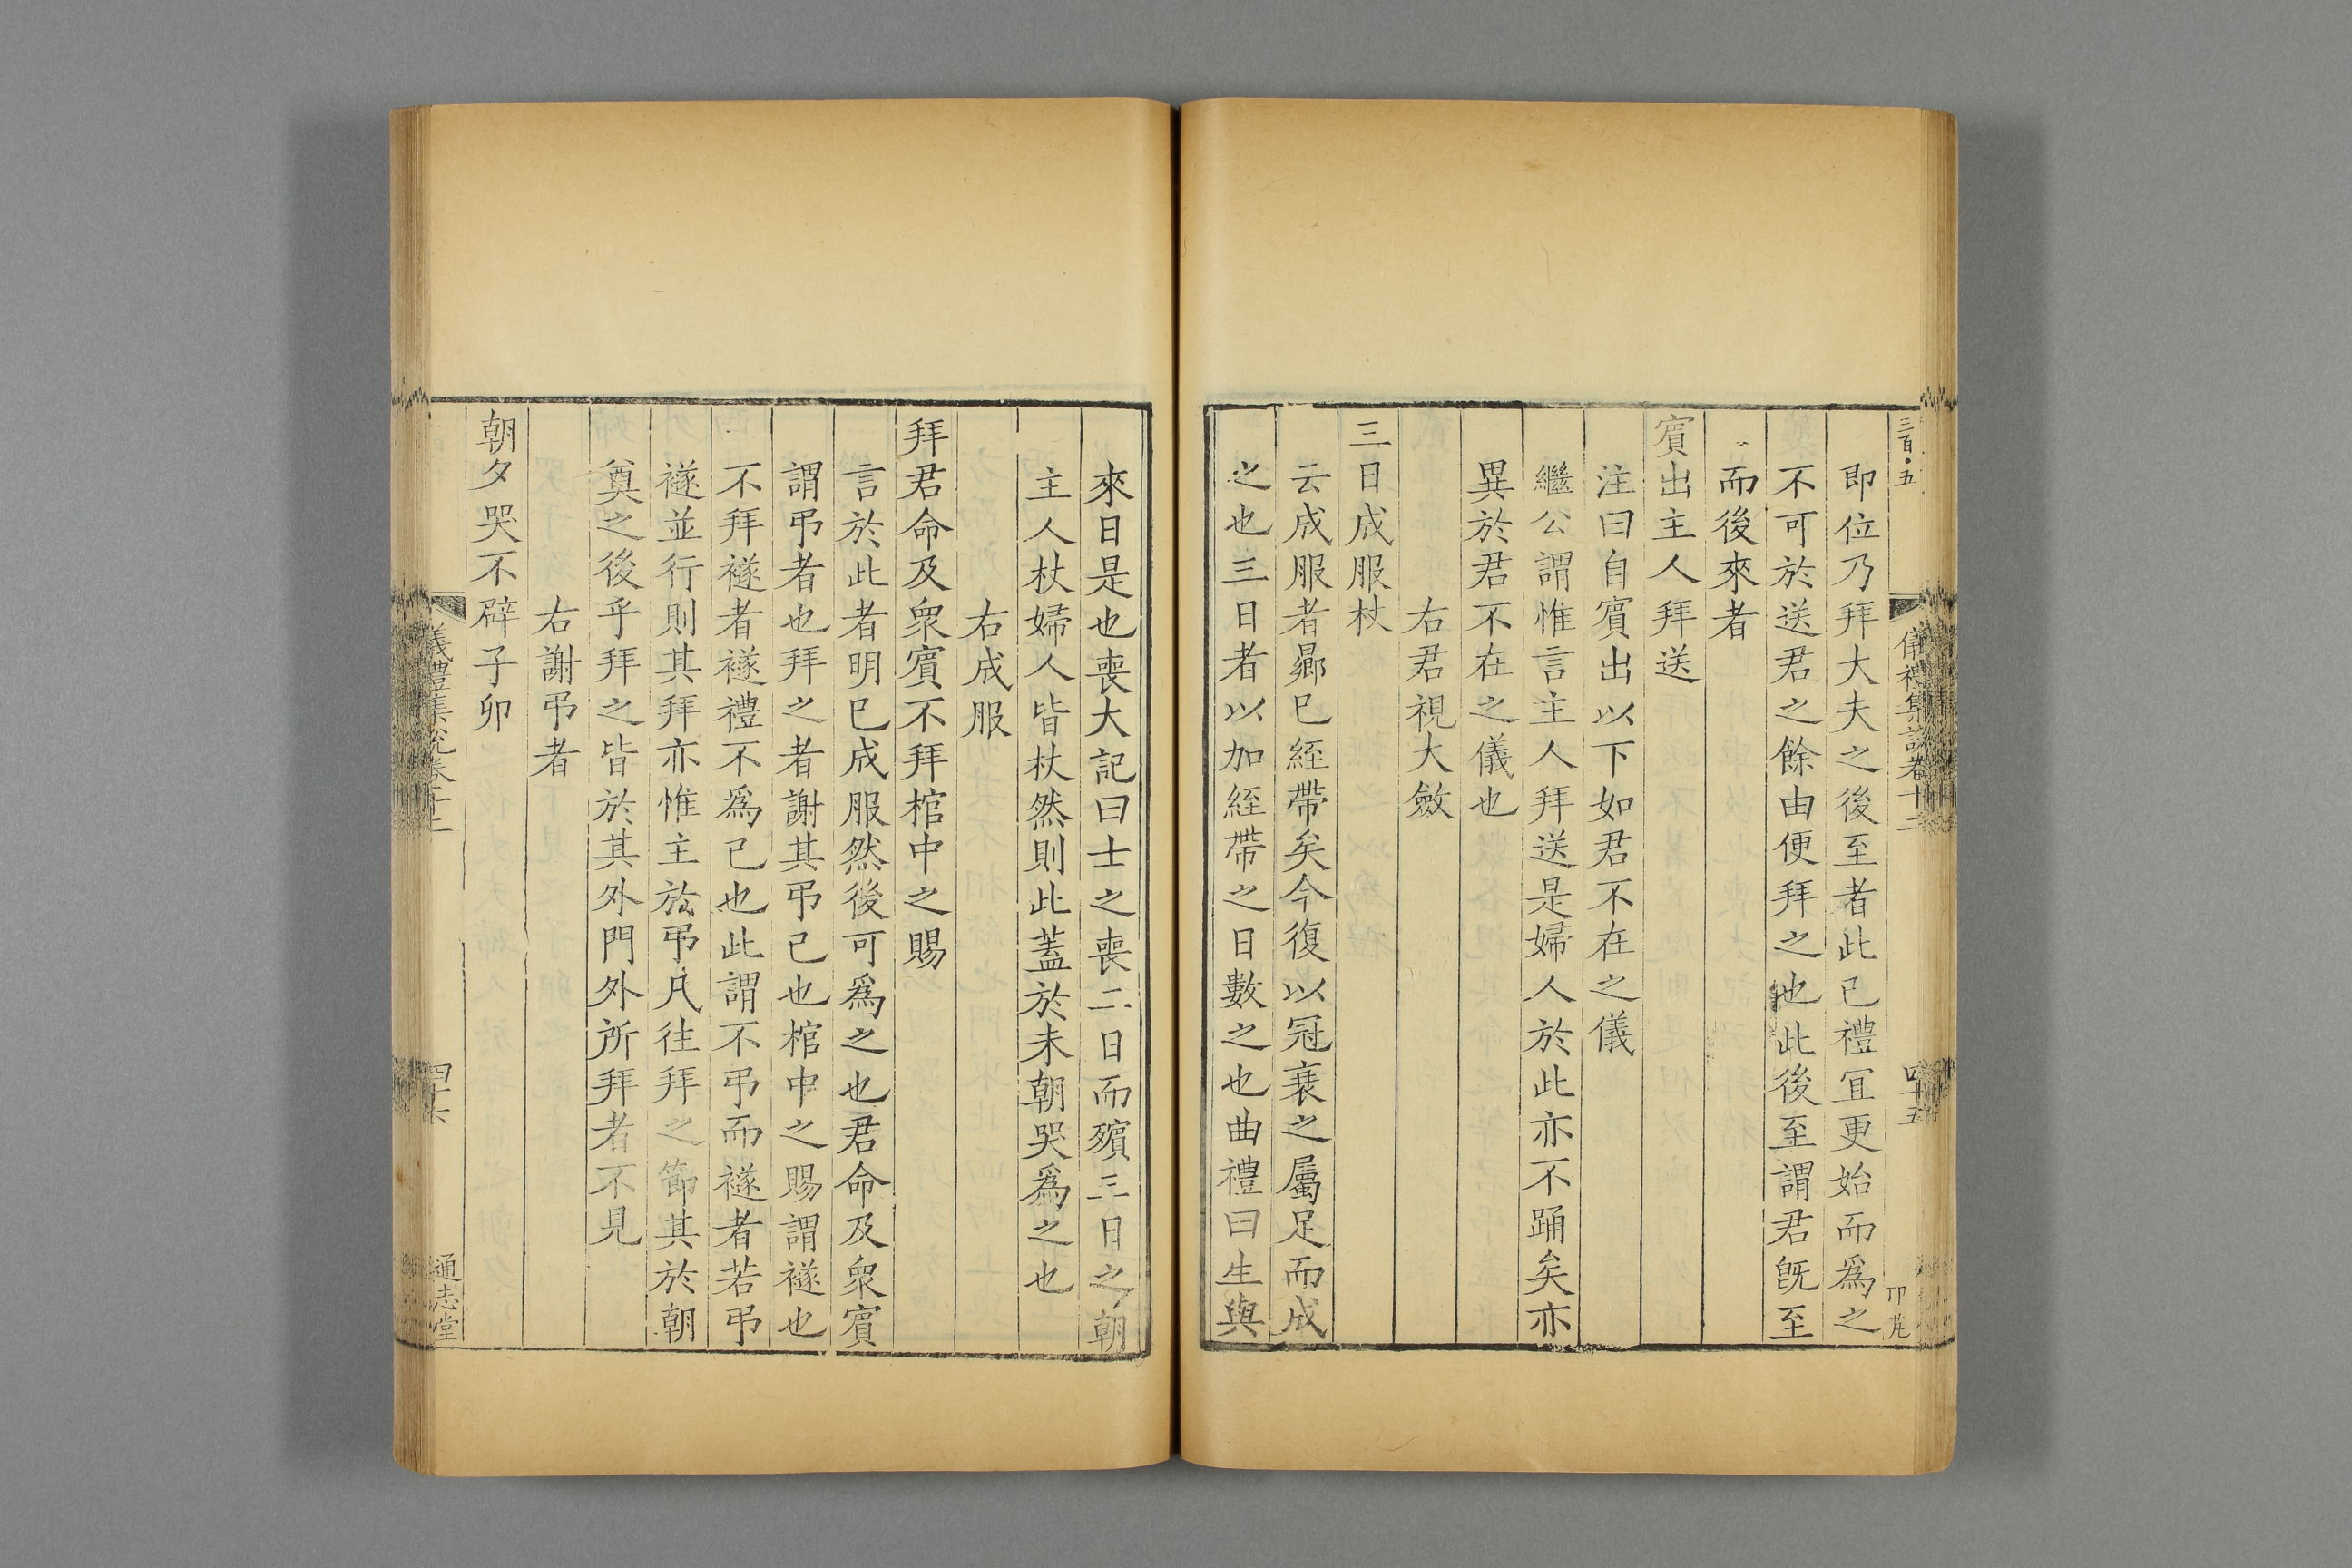 三百·五
儀禮集說卷十二
四十五
即位乃拜大夫之後至者此已禮宜更始而爲之
不可於送君之餘由便拜之也此後至謂君旣至
而後來者
賔出主人拜送
注曰自賔出以下如君不在之儀
繼公謂惟言主人拜送是婦人於此亦不踊矣亦
異於君不在之儀也
右君視大斂
三日成服杖
云成服者曏巳絰帶矣今復以冠衰之屬足而成
之也三日者以加絰帶之日數之也曲禮曰生與
來日是也喪大記曰士之喪二日而殯三日之朝
主人杖婦人皆杖然則此蓋於未朝哭爲之也
右成服
拜君命及衆賔不拜棺中之賜
言於此者明巳成服然後可爲之也君命及衆賔
謂弔者也拜之者謝其弔己也棺中之賜謂襚也
不拜襚者襚禮不爲已也此謂不弔而襚者若弔
襚並行則其拜亦惟主於弔凡往拜之節其於朝
奠之後乎拜之皆於其外門外所拜者不見
右謝弔者
朝夕哭不辟子卯
儀禮集說卷十二
四十六
通志堂